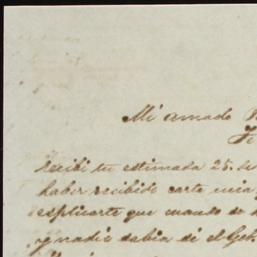 Mi amado
recibí tu estimada 25. de
haber recibido carta mia
esplicarte que cuando se
y nadie sabia si el Gob